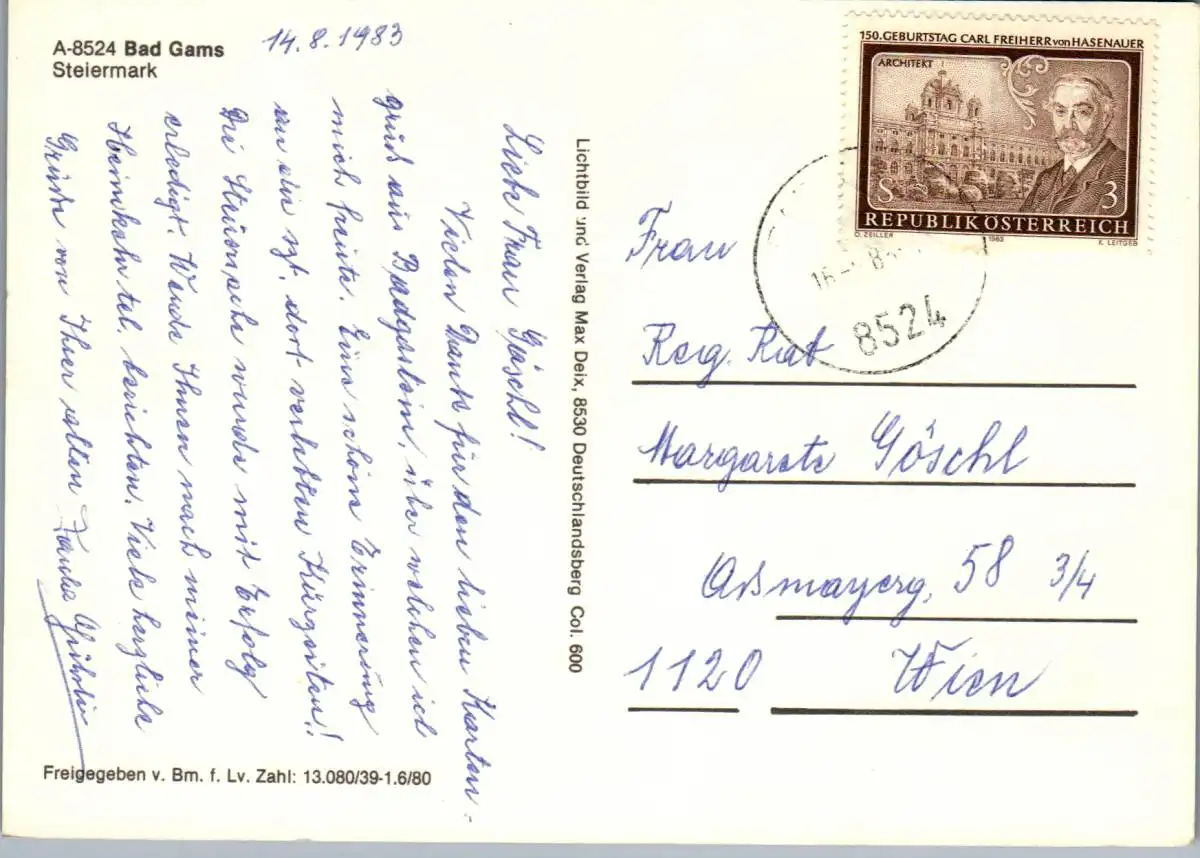 A-8524 Bad Gams
Steiermark
14.8.1983
Liebe Frau Göschl!
Vielen Dank für den lieben Karten-
gruß aus Badgastein, über welchen ich
mich freute. Eine schöne Erinnerung
an die sgt. dort verlebten Kurzeiten!
Die Steuersache wurde mit Erfolg
erledigt. Werde Ihnen nach meiner
Heimkehr tel. berichten. Viele herzliche
Grüße von Ihrer alten
Freigegeben v. Bm. f. Lv. Zahl: 13.080/39-1.6/80
Lichtbild und Verlag Max Deix, 8530 Deutschlandsberg Col. 600
150. GEBURTSTAG CARL FREIHERR von HASENAUER
ARCHITEKT
S 3
REPUBLIK ÖSTERREICH
O. ZEILLER 1983 K. LEITGEB
8524
Frau
Reg. Rat
Margarete Göschl
Aßmayerg. 58 3/4
1120 Wien